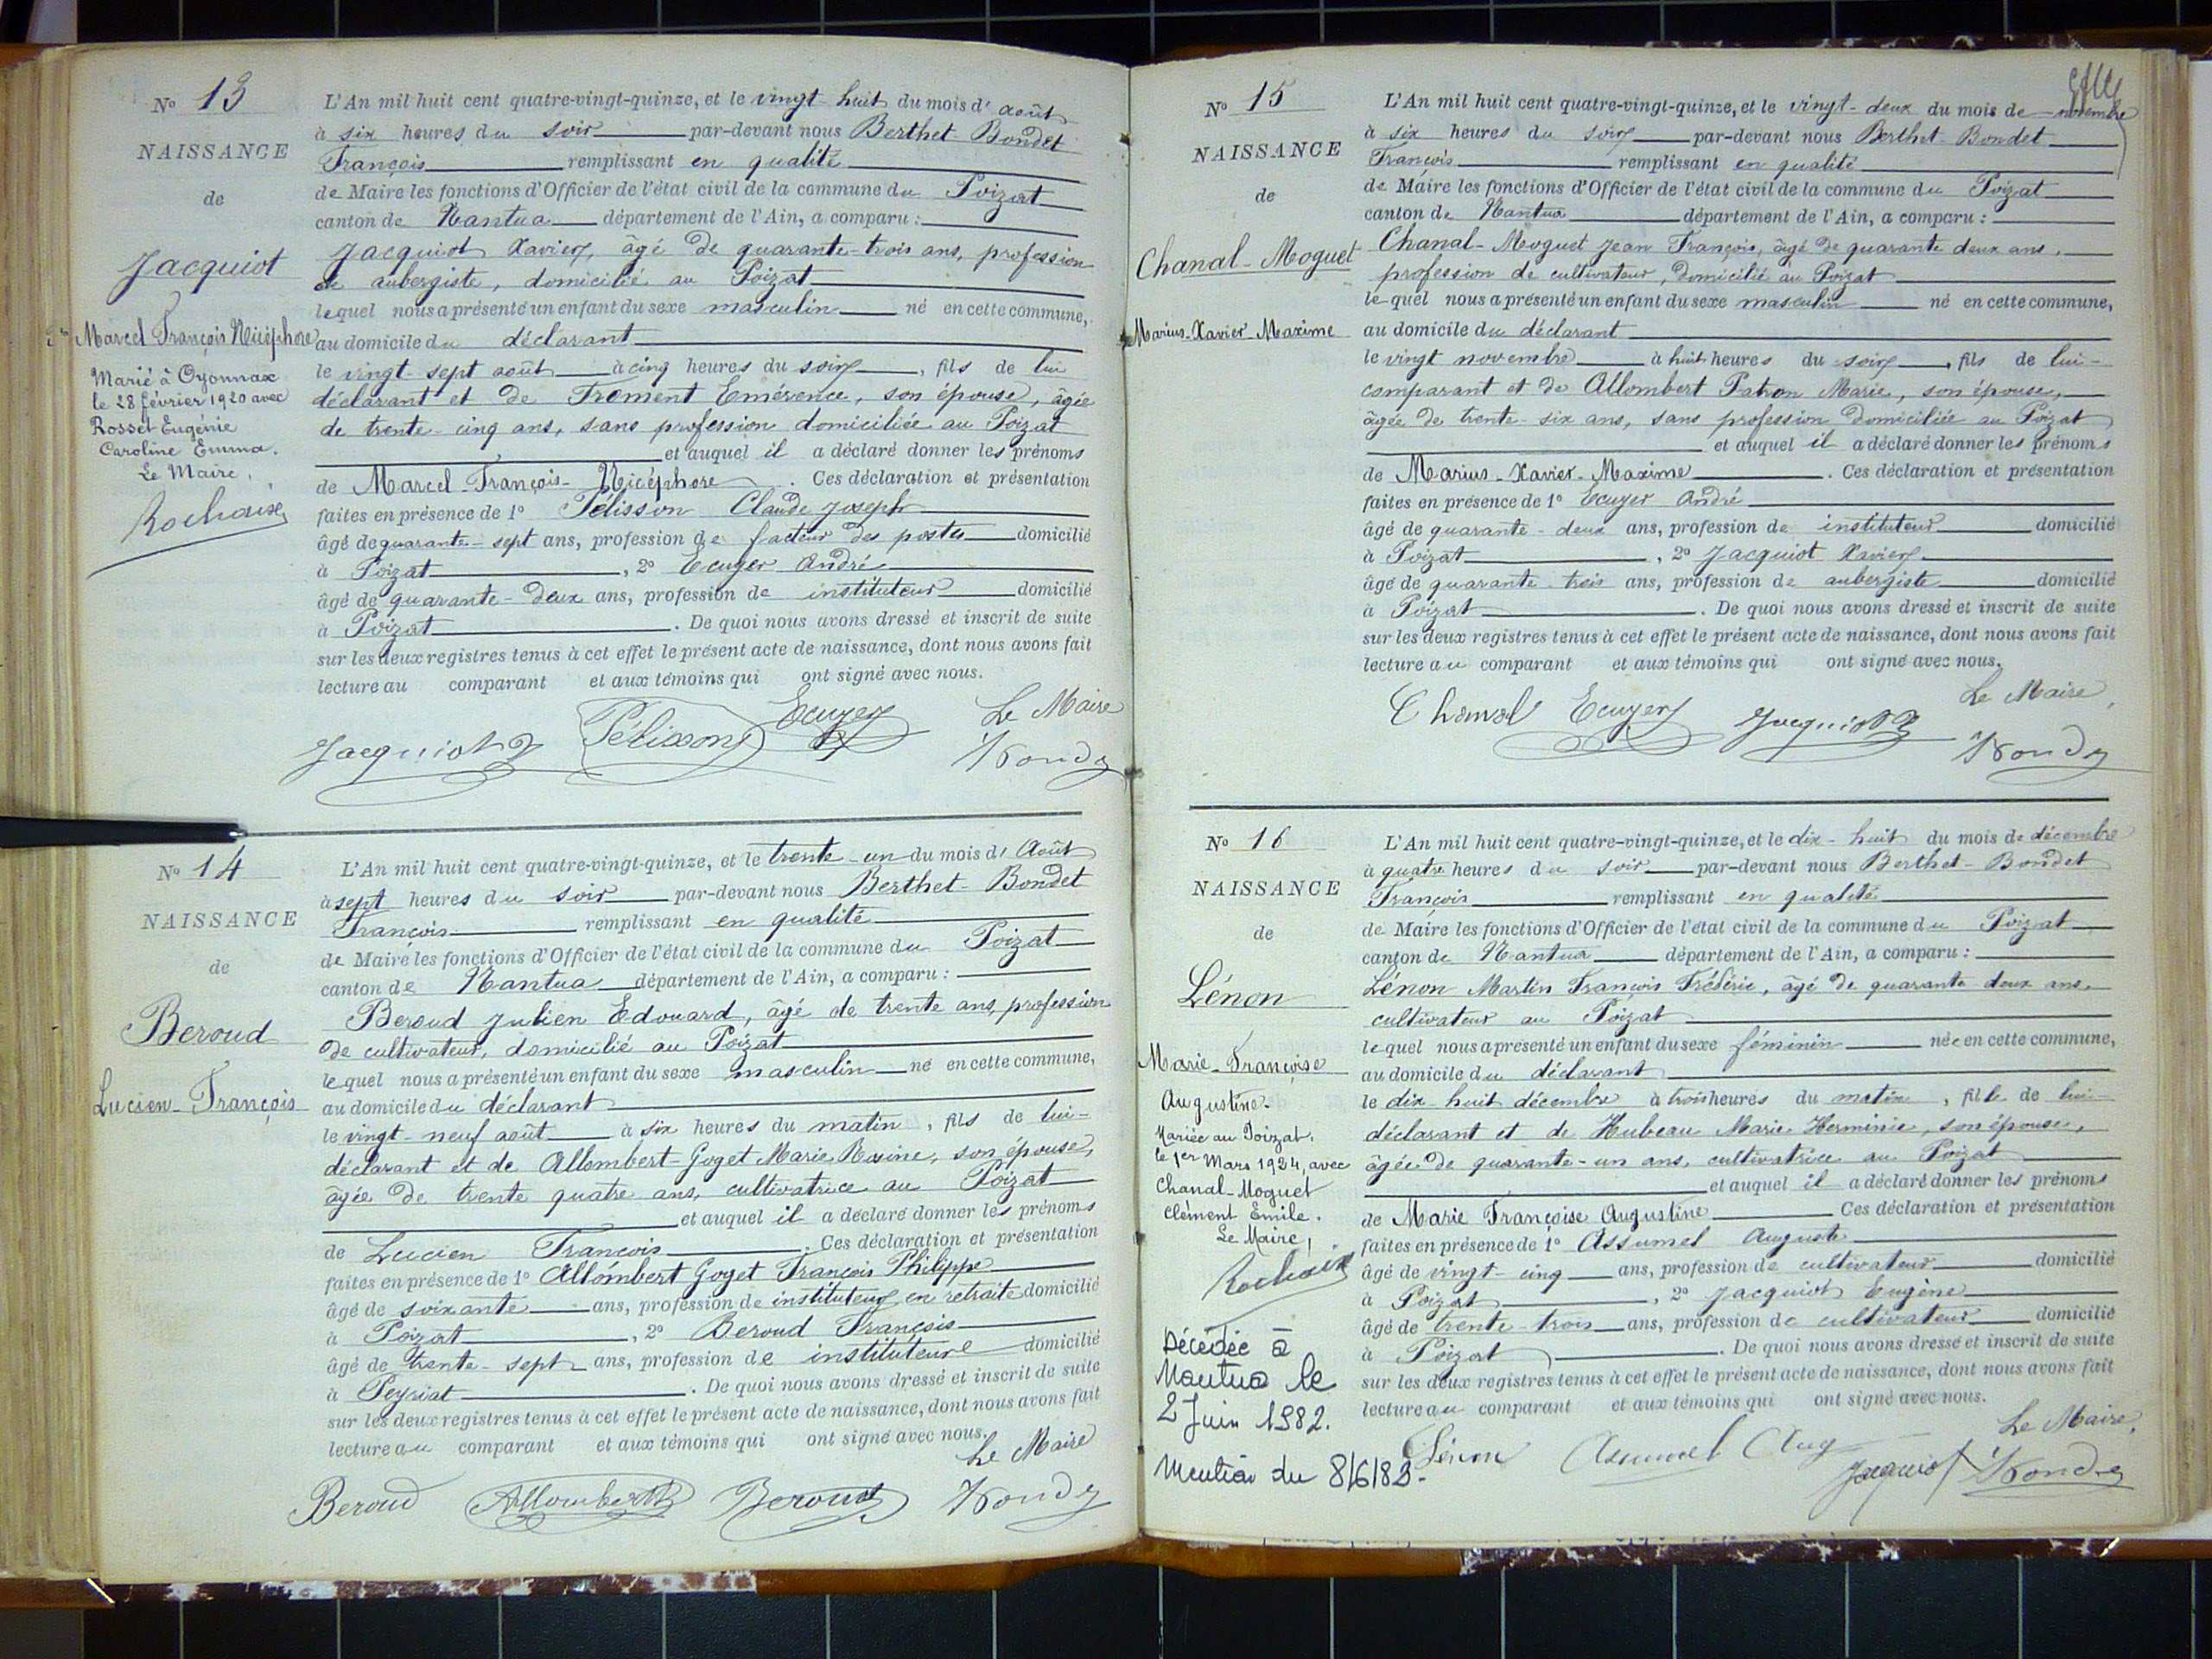 No 13
NAISSANCE
de
Jacquiot
Marcel François Nicéphore
Marié à Oyonnax
le 28 février 1920 avec
Rosset Eugénie
Caroline Emma.
Le Maire,
Rochaix
L'An mil huit cent quatre-vingt-quinze, et le vingt-huit du mois d'août
à six heures du soir par-devant nous Berthet-Bondet
François remplissant en qualité
de Maire les fonctions d'Officier de l'état civil de la commune du Poizat
canton de Nantua département de l'Ain, a comparu :
Jacquiot Xavier, âgé de quarante-trois ans, profession
de aubergiste, domicilié au Poizat
lequel nous a présenté un enfant du sexe masculin né en cette commune,
au domicile du déclarant
le vingt-sept août à cinq heures du soir, fils de lui
déclarant et de Froment Emérence, son épouse, âgée
de trente-cinq ans, sans profession domiciliée au Poizat
et auquel il a déclaré donner les prénoms
de Marcel-François-Nicéphore. Ces déclaration et présentation
faites en présence de 1° Pélisson Claude Joseph
âgé de quarante-sept ans, profession de facteur des postes domicilié
à Poizat, 2° Ecuyer André
âgé de quarante-deux ans, profession de instituteur domicilié
à Poizat. De quoi nous avons dressé et inscrit de suite
sur les deux registres tenus à cet effet le présent acte de naissance, dont nous avons fait
lecture au comparant et aux témoins qui ont signé avec nous.
Le Maire
Jacquiot X Pélisson Ecuyer Bondet
No 14
NAISSANCE
de
Beroud
Lucien-François
L'An mil huit cent quatre-vingt-quinze, et le trente-un du mois d'Août
à sept heures du soir par-devant nous Berthet-Bondet
François remplissant en qualité
de Maire les fonctions d'Officier de l'état civil de la commune du Poizat
canton de Nantua département de l'Ain, a comparu :
Beroud Julien Edouard, âgé de trente ans, profession
de cultivateur, domicilié au Poizat
lequel nous a présenté un enfant du sexe masculin né en cette commune,
au domicile du déclarant
le vingt-neuf août à six heures du matin, fils de lui-
déclarant et de Allombert-Goget Marie Rosine, son épouse,
âgée de trente quatre ans, cultivatrice au Poizat
et auquel il a déclaré donner les prénoms
de Lucien François. Ces déclaration et présentation
faites en présence de 1° Allombert Goget François Philippe
âgé de soixante ans, profession de instituteur en retraite domicilié
à Poizat, 2° Beroud François
âgé de trente-sept ans, profession de instituteur domicilié
à Peyriat. De quoi nous avons dressé et inscrit de suite
sur les deux registres tenus à cet effet le présent acte de naissance, dont nous avons fait
lecture au comparant et aux témoins qui ont signé avec nous.
Le Maire
Beroud Allombert Beroud Bondet
No 15
NAISSANCE
de
Chanal-Moguet
Marius-Xavier-Maxime
L'An mil huit cent quatre-vingt-quinze, et le vingt-deux du mois de novembre
à six heures du soir par-devant nous Berthet-Bondet
François remplissant en qualité
de Maire les fonctions d'Officier de l'état civil de la commune du Poizat
canton de Nantua département de l'Ain, a comparu :
Chanal-Moguet Jean François, âgé de quarante deux ans,
profession de cultivateur, domicilié au Poizat
lequel nous a présenté un enfant du sexe masculin né en cette commune,
au domicile du déclarant
le vingt novembre à huit heures du soir, fils de lui-
comparant et de Allombert Patron Marie, son épouse,
âgée de trente-six ans, sans profession domiciliée au Poizat
et auquel il a déclaré donner les prénoms
de Marius-Xavier-Maxime. Ces déclaration et présentation
faites en présence de 1° Ecuyer André
âgé de quarante-deux ans, profession de instituteur domicilié
à Poizat, 2° Jacquiot Xavier
âgé de quarante-trois ans, profession de aubergiste domicilié
à Poizat. De quoi nous avons dressé et inscrit de suite
sur les deux registres tenus à cet effet le présent acte de naissance, dont nous avons fait
lecture au comparant et aux témoins qui ont signé avec nous.
Le Maire,
Chanal Ecuyer Jacquiot X Bondet
No 16
NAISSANCE
de
Lénon
Marie-Françoise
Augustine.
Mariée au Poizat.
le 1er Mars 1924, avec
Chanal-Moguet
Clément Emile.
Le Maire,
Rochaix
Décédée à
Nantua le
2 Juin 1982.
Mention du 8/6/82.
L'An mil huit cent quatre-vingt-quinze, et le dix-huit du mois de décembre
à quatre heures du soir par-devant nous Berthet-Bondet
François remplissant en qualité
de Maire les fonctions d'Officier de l'état civil de la commune du Poizat
canton de Nantua département de l'Ain, a comparu :
Lénon Martin François Frédéric, âgé de quarante deux ans.
cultivateur au Poizat
lequel nous a présenté un enfant du sexe féminin née en cette commune,
au domicile du déclarant
le dix-huit décembre à trois heures du matin, fille de lui-
déclarant et de Hubeau Marie Herminie, son épouse,
âgée de quarante-un ans, cultivatrice au Poizat
et auquel il a déclaré donner les prénoms
de Marie Françoise Augustine Ces déclaration et présentation
faites en présence de 1° Assumel Auguste
âgé de vingt-cinq ans, profession de cultivateur domicilié
à Poizat, 2° Jacquiot Eugène
âgé de trente-trois ans, profession de cultivateur domicilié
à Poizat. De quoi nous avons dressé et inscrit de suite
sur les deux registres tenus à cet effet le présent acte de naissance, dont nous avons fait
lecture au comparant et aux témoins qui ont signé avec nous.
Le Maire,
Lénon Assumel Aug Jacquiot Bondet